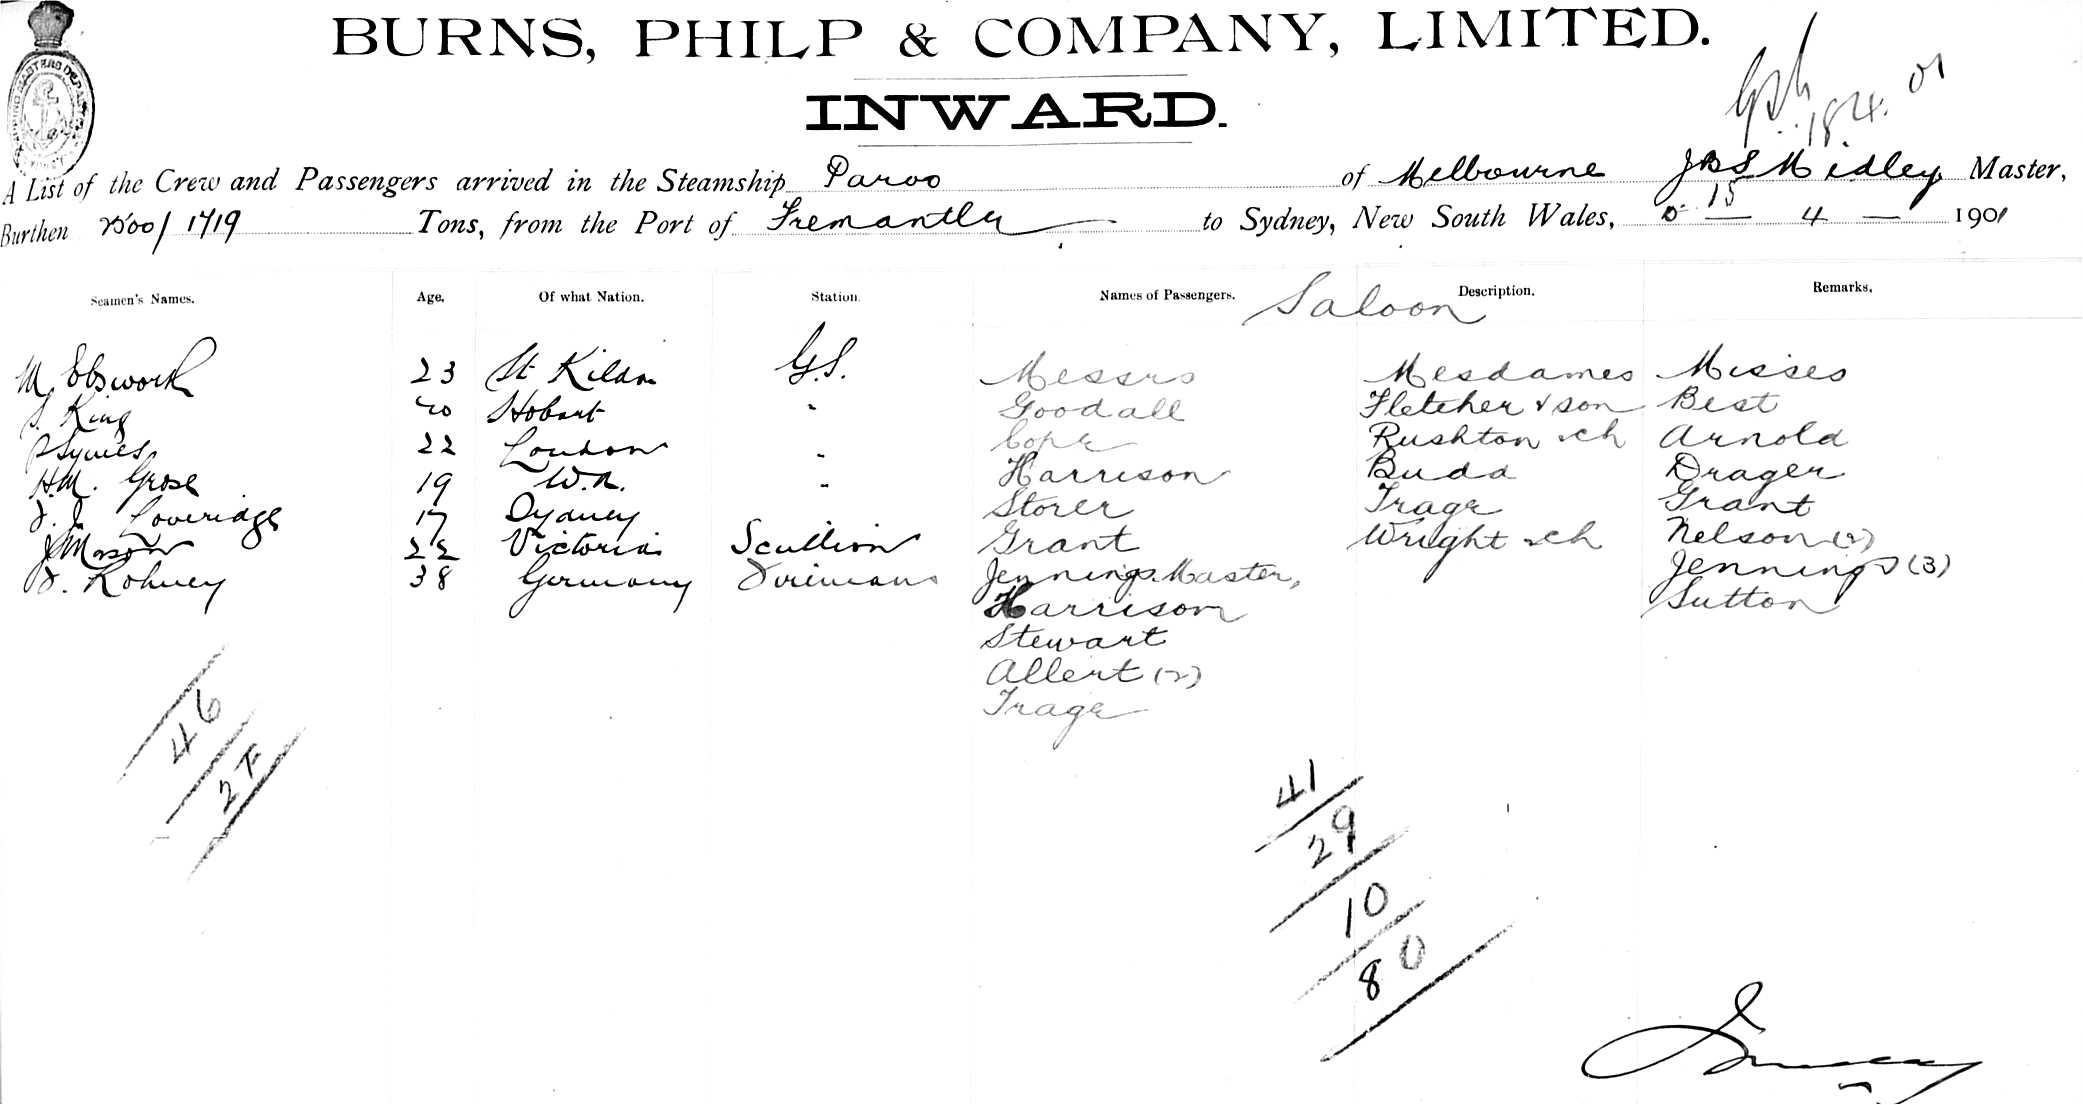 BURNS, PHILP & COMPANY, LIMITED.
INWARD.
18.4.01
A List of the Crew and Passengers arrived in the Steamship Paroo of Melbourne Midley Master,
Burthen 2500/1719 Tons, from the Port of Fremantle to Sydney, New South Wales, 15 - 4 - 1901
Seamen's Names. Age. Of what Nation. Station. Names of Passengers. Saloon Description. Remarks.
M. Ebswork 23 St Kilda G.S. Messrs Mesdames Misses
S. King 20 Hobart " Goodall Fletcher & son Best
P Symes 22 London " Cope Rushton & ch Arnold
H.M. Grose 19 W.A. " Harrison Budd Drager
J. J. Loveridge 17 Sydney Storer Trage Grant
J Mason 22 Victoria Scullion Grant Wright & ch Nelson (2)
Germany 38 Jennings. Master, Jennings (3)
Harrison Sutton
Stewart
Allert (2)
Trage
46
27
41
29
10
80